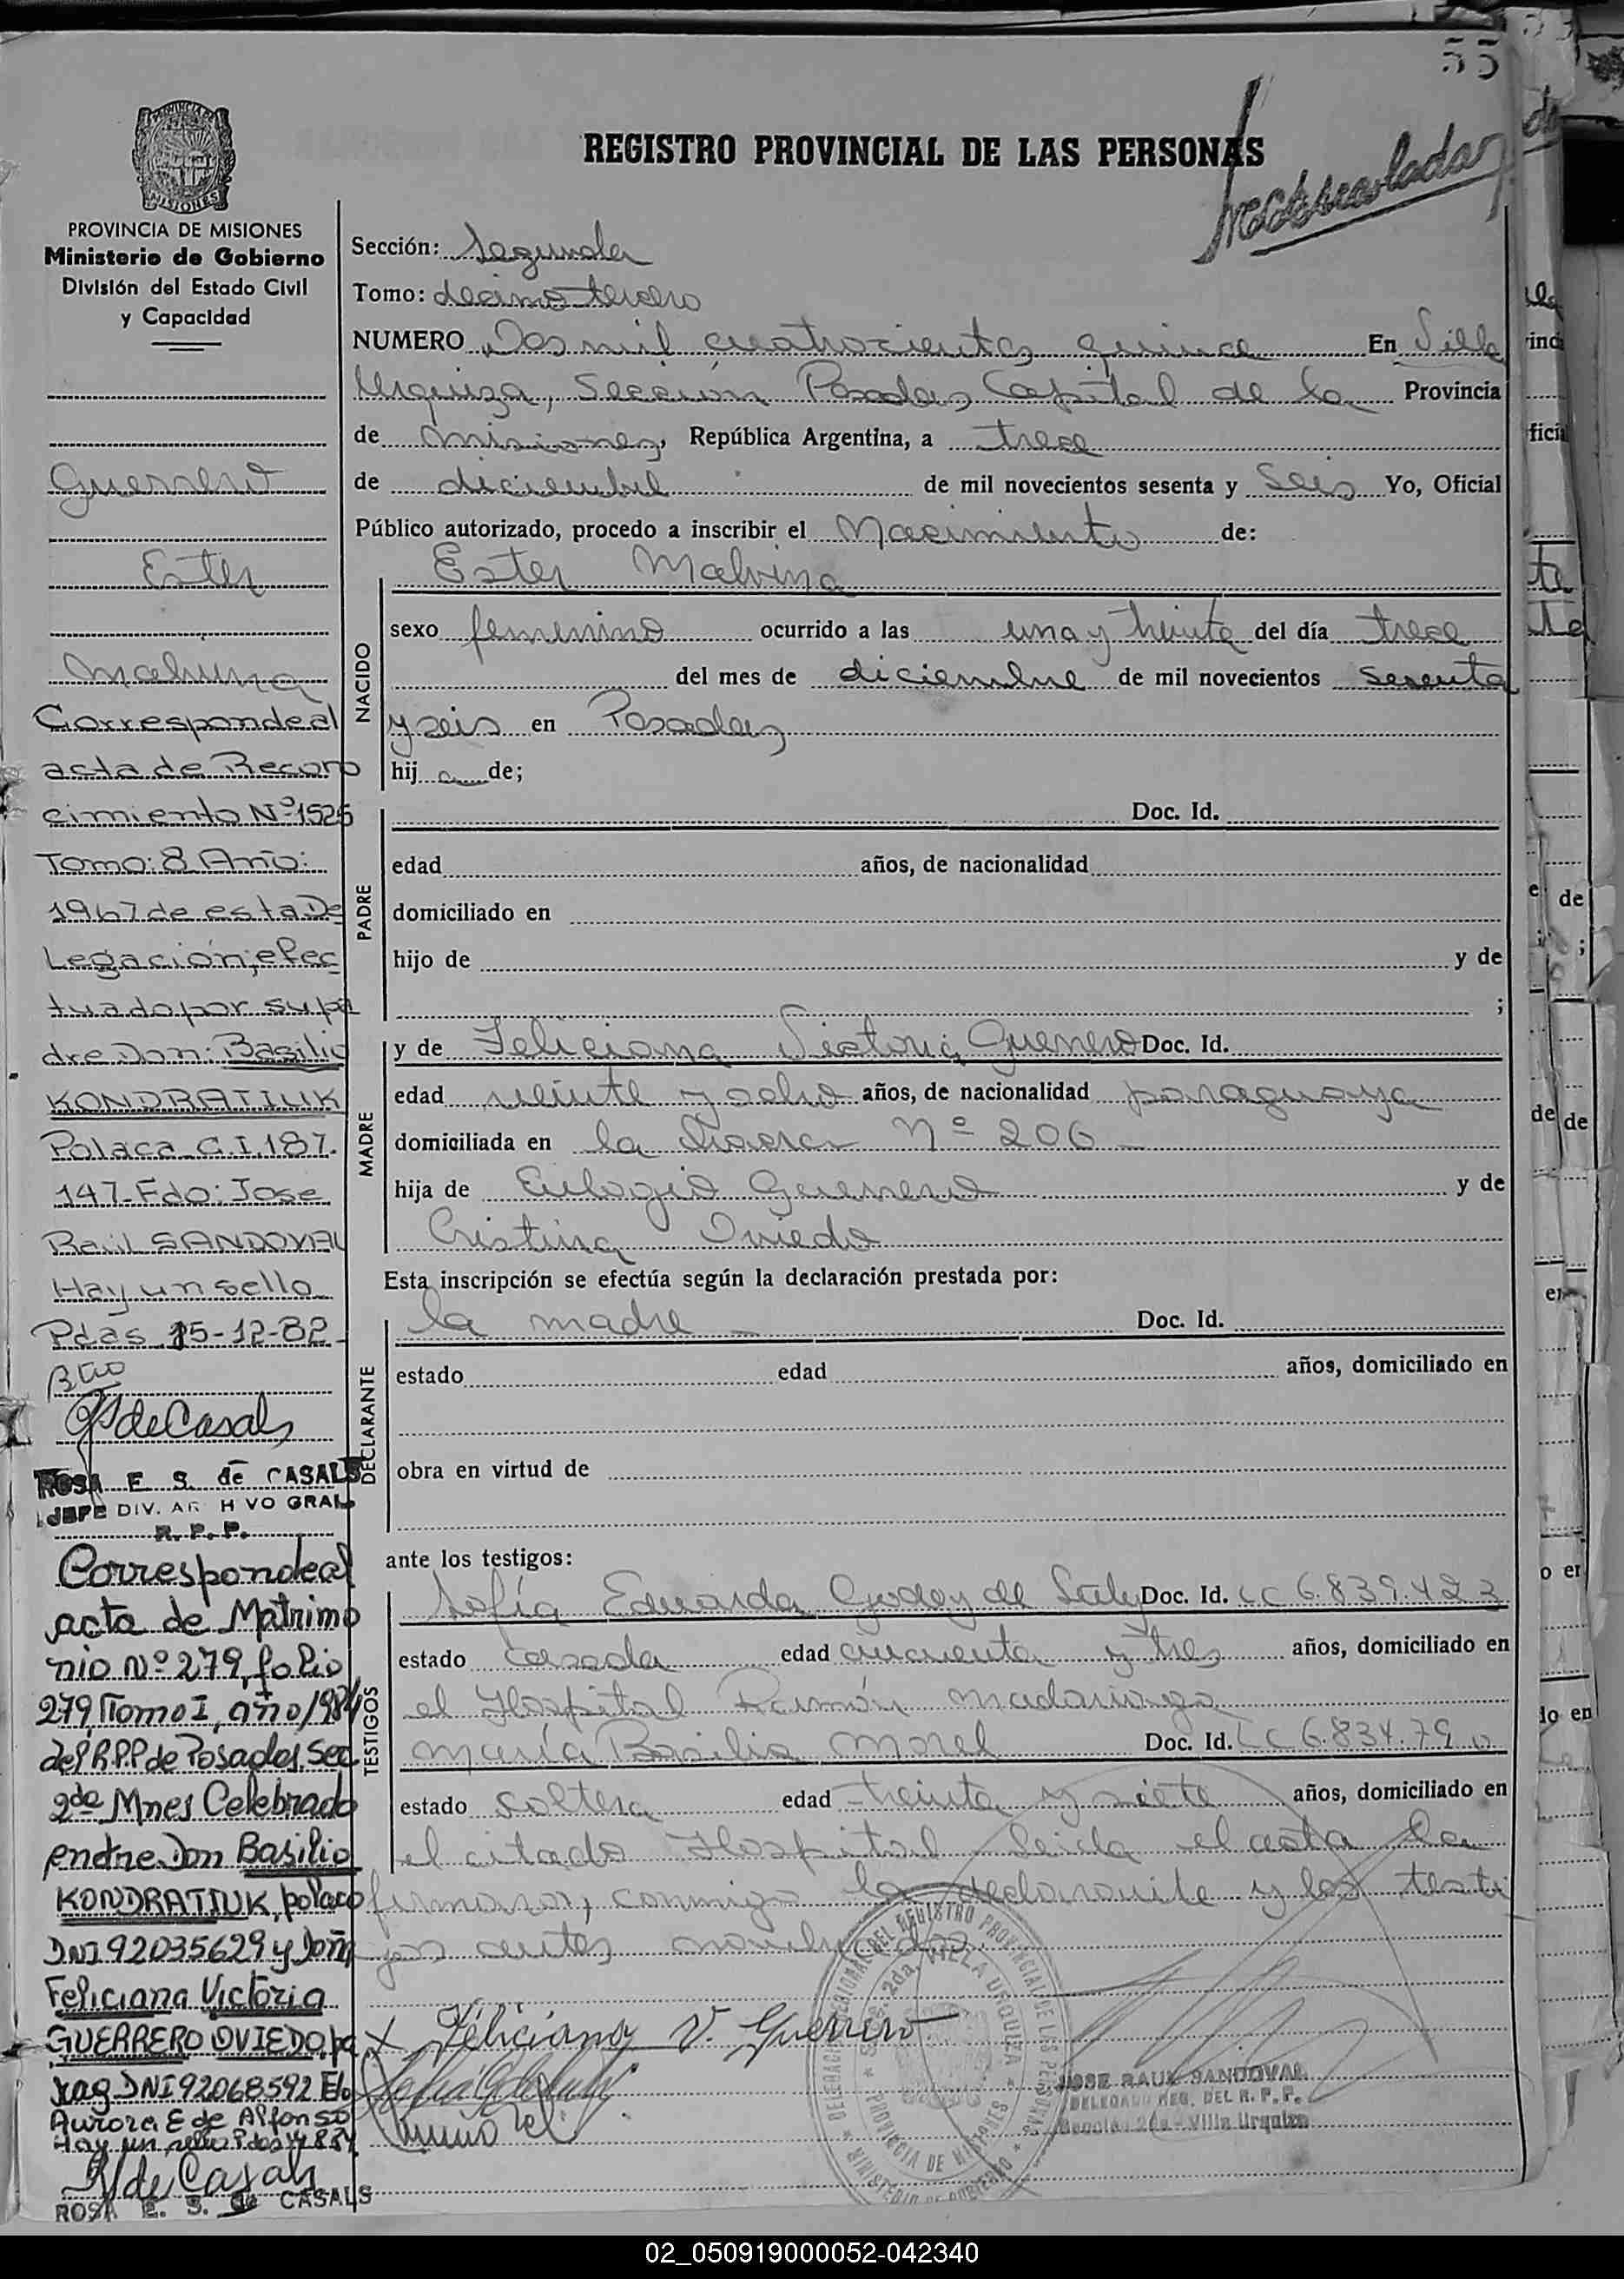 55
REGISTRO PROVINCIAL DE LAS PERSONAS
PROVINCIA DE MISIONES
Ministerio de Gobierno
División del Estado Civil
y Capacidad
Guerrero
Ester
Malvina
Corresponde al
acta de Recono
cimiento Nº 1525
Tomo: 8 Año:
1967 de esta De
Legación; efec
tuado por su pa
dre Don: Basilio
KONDRATIUK
Polaca C.I. 187.
147-Fdo: Jose
Raúl SANDOVAL
Hay un sello
Pdas 15-12-82-
ROSA E. S. de CASALS
JEFE DIV. ARCHIVO GRAL
R. P. P.
Corresponde al
acta de Matrimo
nio Nº 279, folio
279, Tomo I, año 1984
del R.P.P de Posadas, Sec
2da Mnes Celebrado
entre Don Basilio
KONDRATIUK, polaco
DNI 92035629 y Doña
Feliciana Victoria
GUERRERO OVIEDO, pa
rag DNI 92068592 Fdo
Aurora E de Alfonso
Hay un sello Pdas
ROSA E. S. de CASALS
Sección: Segunda
Tomo: decimo tercero
NUMERO Dos mil cuatrocientos quince En Villa
Urquiza, Sección Posadas Capital de la Provincia
de Misiones, República Argentina, a trece
de diciembre de mil novecientos sesenta y Seis Yo, Oficial
Público autorizado, procedo a inscribir el Nacimiento de:
Ester Malvina
NACIDO
sexo femenino ocurrido a las una y treinta del día trece
del mes de diciembre de mil novecientos sesenta
y seis en Posadas
hij a de;
PADRE
Doc. Id.
edad años, de nacionalidad
domiciliado en
hijo de y de
;
MADRE
y de Feliciana Victoria Guerrero Doc. Id.
edad veinte y ocho años, de nacionalidad paraguaya
domiciliada en la Chacra Nº 206
hija de Eulogio Guerrero y de
Cristina Oviedo
Esta inscripción se efectúa según la declaración prestada por:
DECLARANTE
la madre Doc. Id.
estado edad años, domiciliado en
obra en virtud de
ante los testigos:
TESTIGOS
Sofía Eduarda Godoy de Doc. Id. LC 6.839.423
estado Casada edad cincuenta y tres años, domiciliado en
el Hospital Ramón Madariaga
María Basilia Morel Doc. Id. LC 6.834.790
estado soltera edad treinta y siete años, domiciliado en
el citado Hospital leida el acta la
firmaron, conmigo la declarante y los testi
gos antes nombrados.
x Feliciana V. Guerrero
DELEGACION REGIONAL DEL REGISTRO PROVINCIAL DE LAS PERSONAS
SEC. 2da. VILLA URQUIZA
PROVINCIA DE MISIONES
MINISTERIO DE GOBIERNO
JOSE RAUL SANDOVAL
DELEGADO REG. DEL R. P. P.
Sección 2da - Villa Urquiza
02_050919000052-042340